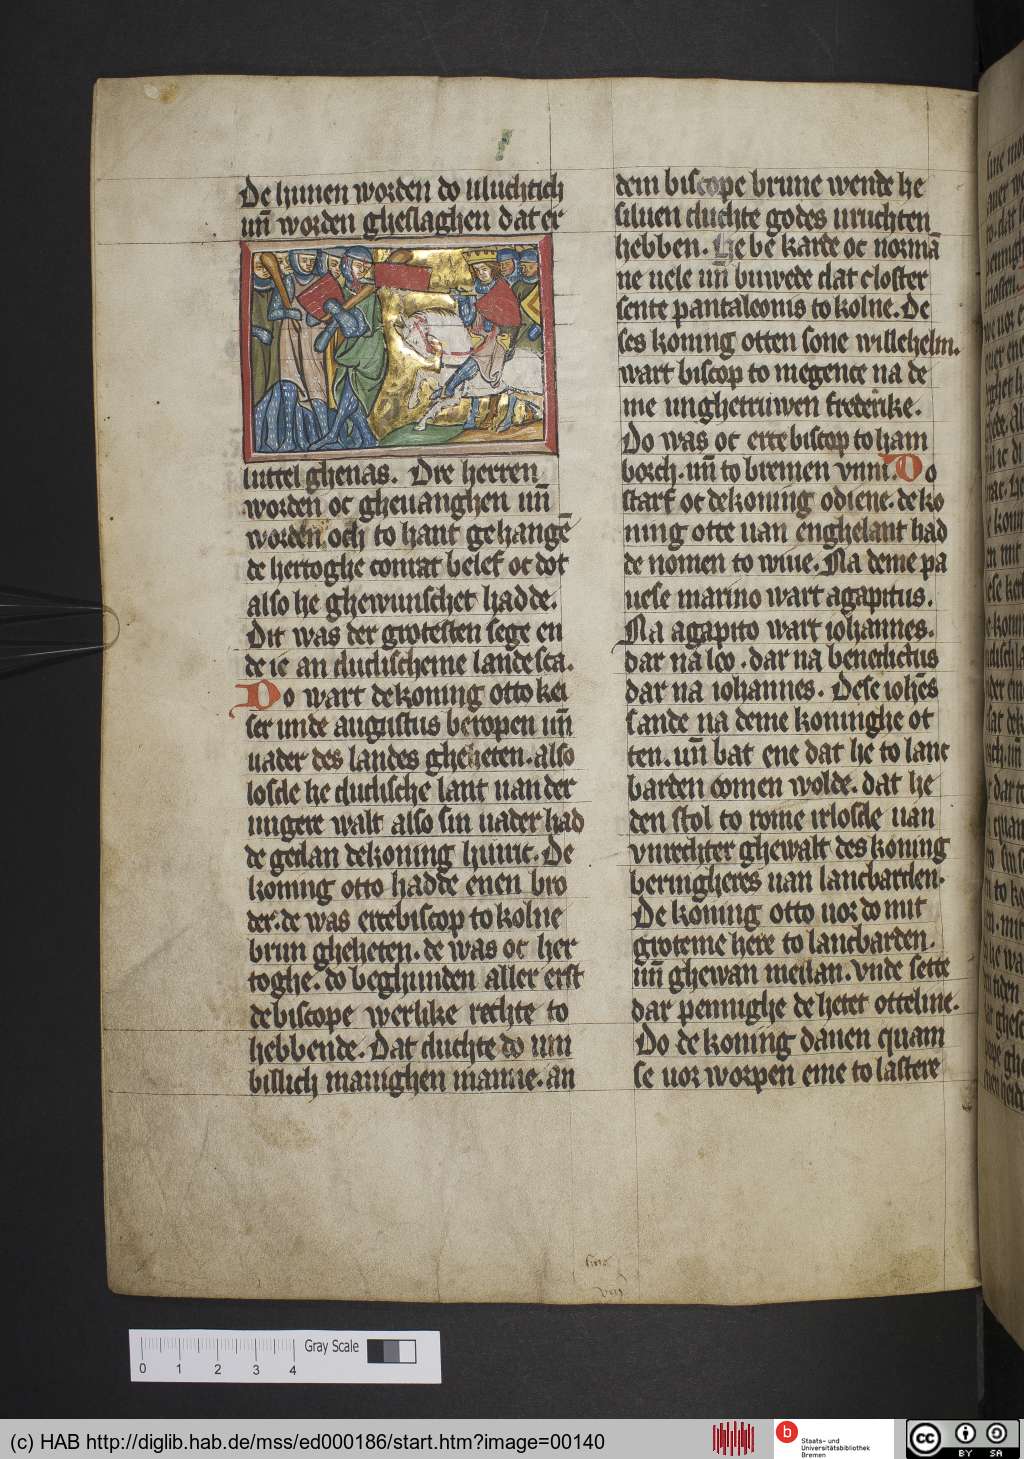 De hunen worden do vluchtich
uñ worden gheslaghen dat er
luttel ghenas. Dre herren
worden oc gheuanghen uñ
worden och to hant gehangē
de hertoghe conrat belef oc dot
also he ghewunschet hadde.
Dit was der grotesten sege en
de ie an dudischeme lande sca.
Do wart de koning otto kei
ser unde augustus beropen uñ
uader des landes gheheten. also
losde he dudische lant uan der
ungere walt also sin uader had
de gedan de koning hinric. De
koning otto hadde enen bro
der. de was ercebiscop to kolne
brun gheheten. de was oc her
toghe. do beghunden aller erst
de biscope werlike rechte to
hebbende. Dat duchte do um
billich manighen manne. an
dem biscope brune wende he
siluen duchte godes uruchten
hebben. He be karde oc normā
ne uele uñ buwede dat closter
sente pantaleonis to kolne. De
ses koning otten sone willehelm.
wart biscop to megence na de
me unghetruwen frederike.
Do was oc ercebiscop to ham
borch. uñ to bremen vnni. Do
starf oc de koning odiene. de ko
ning otte uan enghelant had
de nomen to wiue. Na deme pa
uese marino wart agapitus.
Na agapito wart iohannes.
dar na leo. dar na benedictus
dar na iohannes. Dese iohēs
sande na deme koninghe ot
ten. uñ bat ene dat he to lanc
barden comen wolde. dat he
den stol to rome irlosde uan
vnrechter ghewalt des koning
beringheres uan lancbarden.
De koning otto uor do mit
groteme here to lancbarden.
uñ ghewan meilan. vnde sette
dar pennighe de hetet otteline.
Do de koning danen quam
se uor worpen eme to lastere
Gray Scale
0 1 2 3 4
(c) HAB http://diglib.hab.de/mss/ed000186/start.htm?image=00140
b
Staats- und
Universitätsbibliothek
Bremen
cc
BY SA